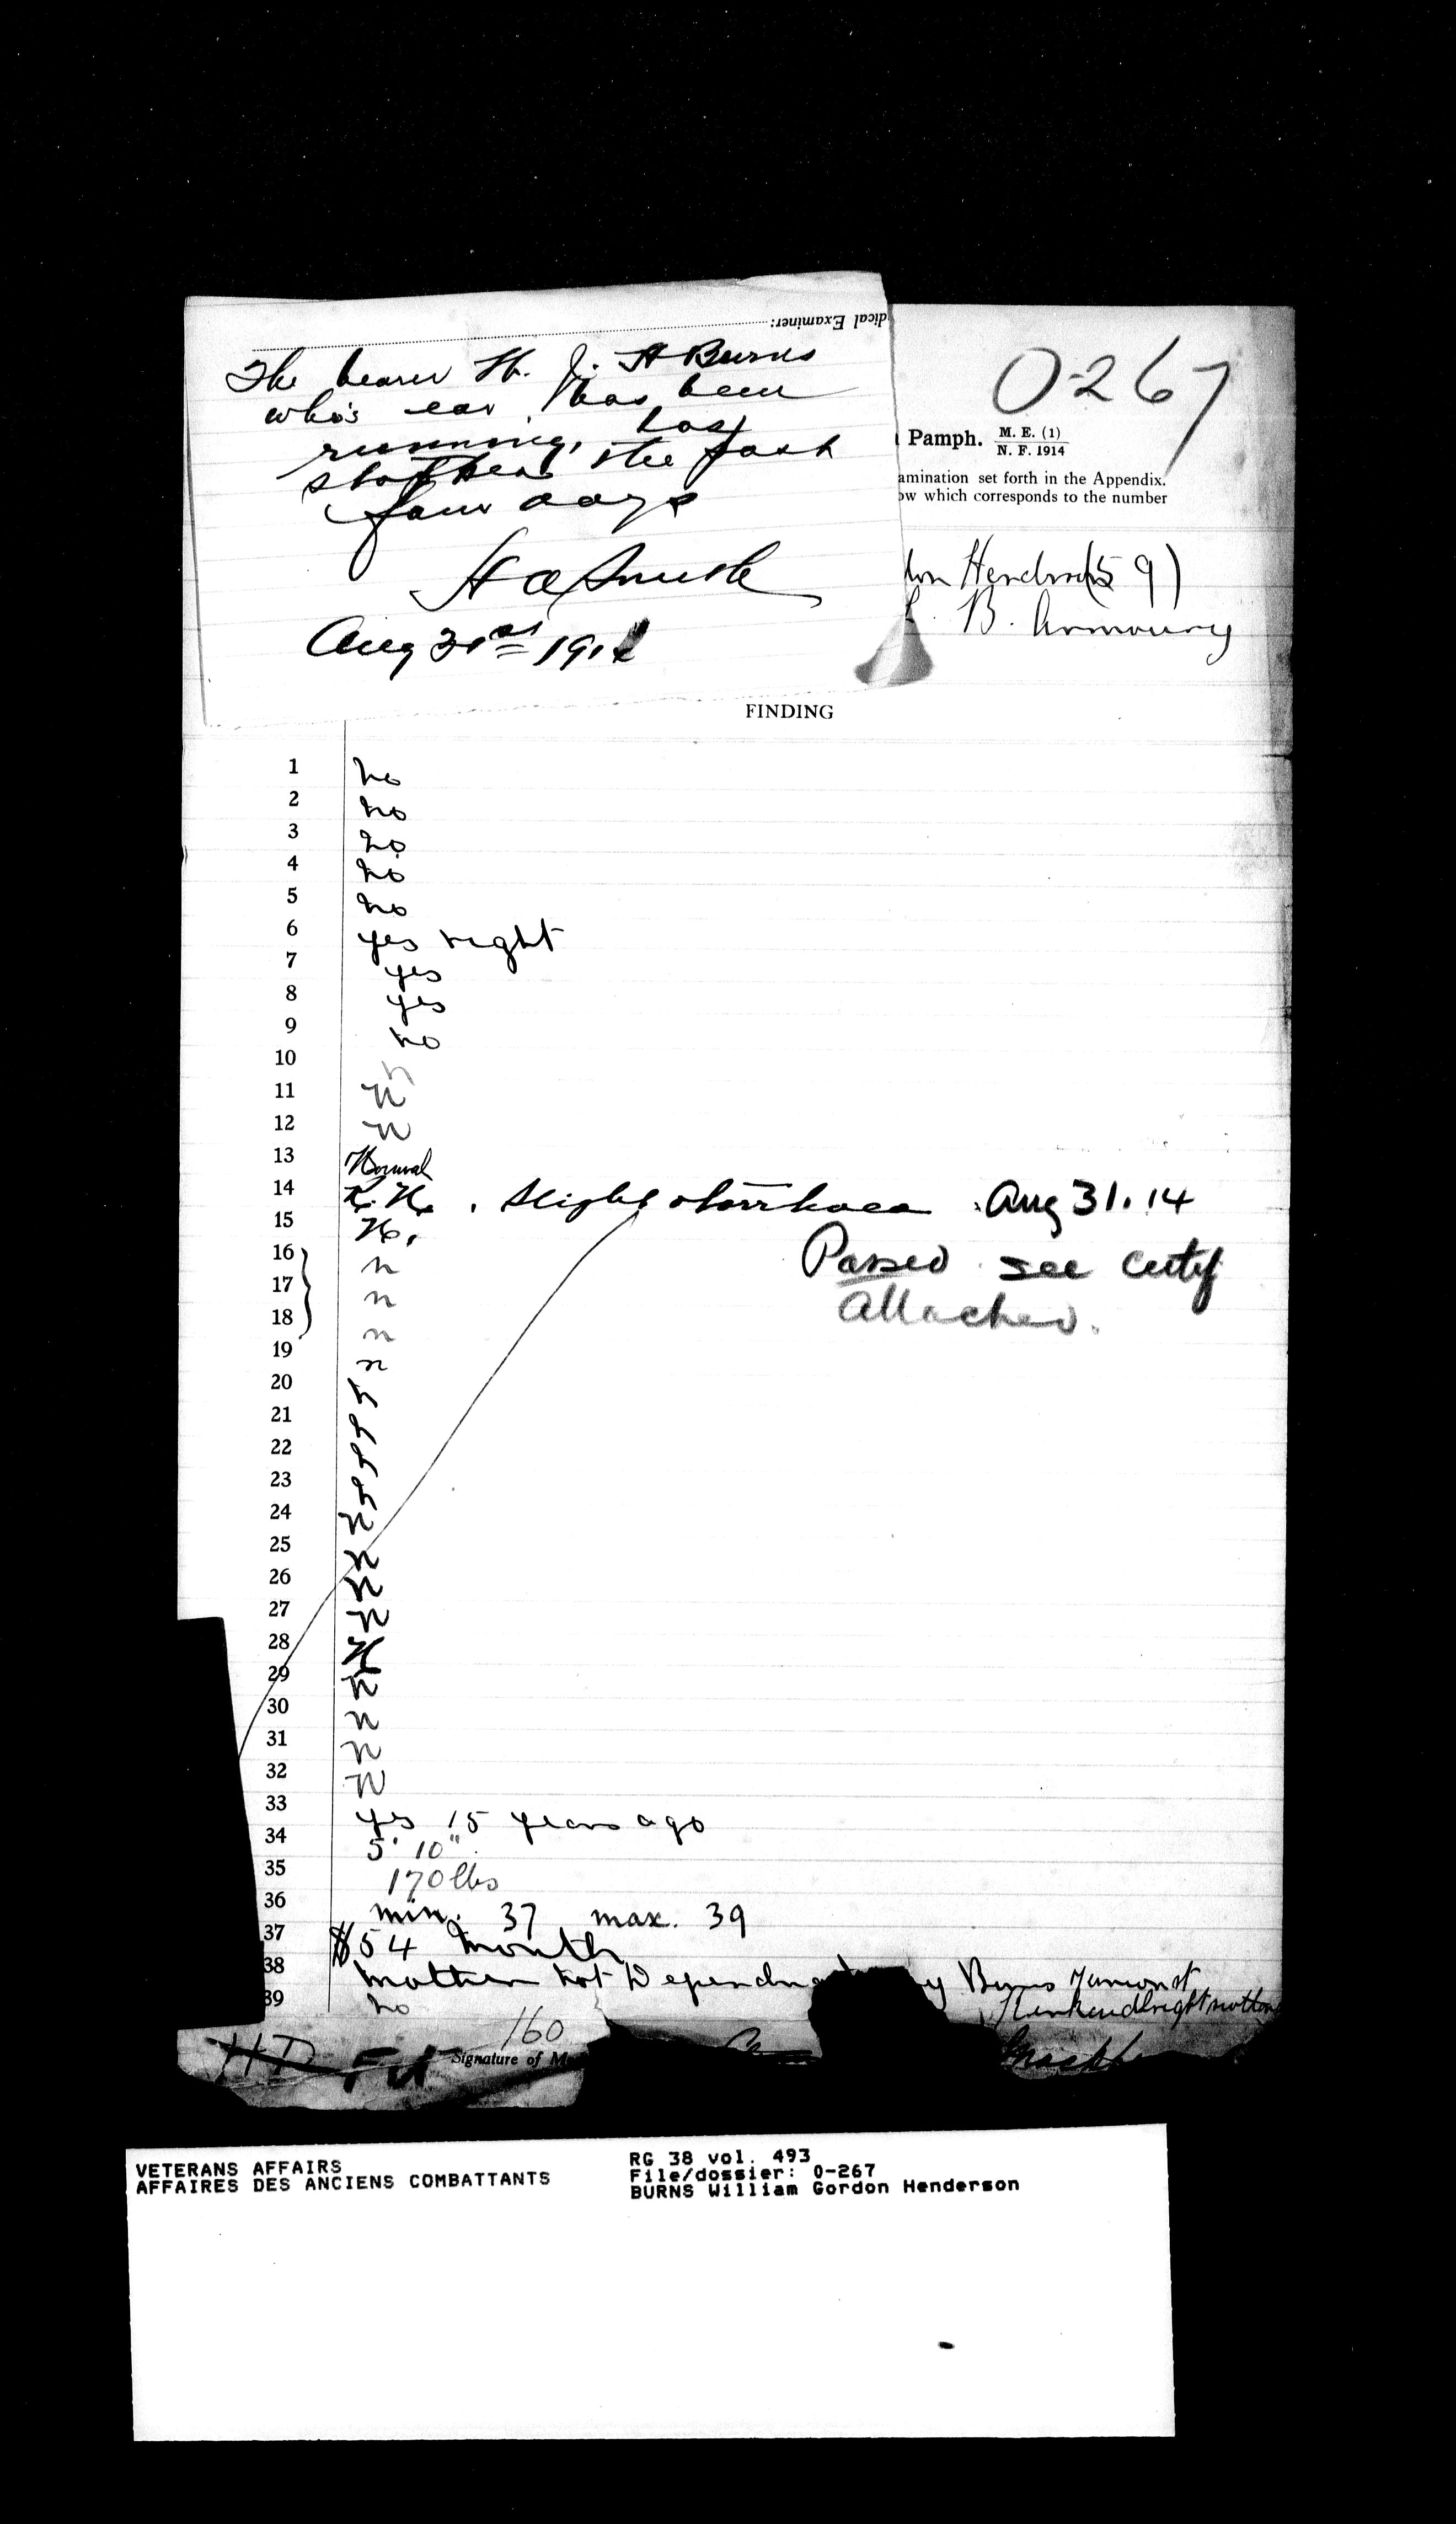 dical Examiner:
The bearer W. G. H Burns
who's ear has been
running, has
stopped the past
four days
H A Smith
Aug 31st 1914
0-267
Pamph. M. E. (1)
N. F. 1914
amination set forth in the Appendix.
ow which corresponds to the number
don Henderson (59)
B. Armoury
FINDING
1 no
2 no
3 no
4 no
5 no
6 yes right
7 yes
8 yes
9 no
10
11 N
12 N
13 Normal
14 R. N. Slight otorrhoea Aug 31. 14
15 N.
Passed see certif
attached.
16 n
17 n
18 n
19 n
20
21
22
23
24 N
25 N
26 N
27 N
28 N
29 N
30 N
31 N
32 N
33 yes 15 years ago
34 5' 10"
35 170 lbs
36 min. 37 max. 39
37 $54 month
38 Mother not Depend Burns
39 no
160
H D Fit Signature of M
VETERANS AFFAIRS
AFFAIRES DES ANCIENS COMBATTANTS
RG 38 vol. 493
File/dossier: 0-267
BURNS William Gordon Henderson